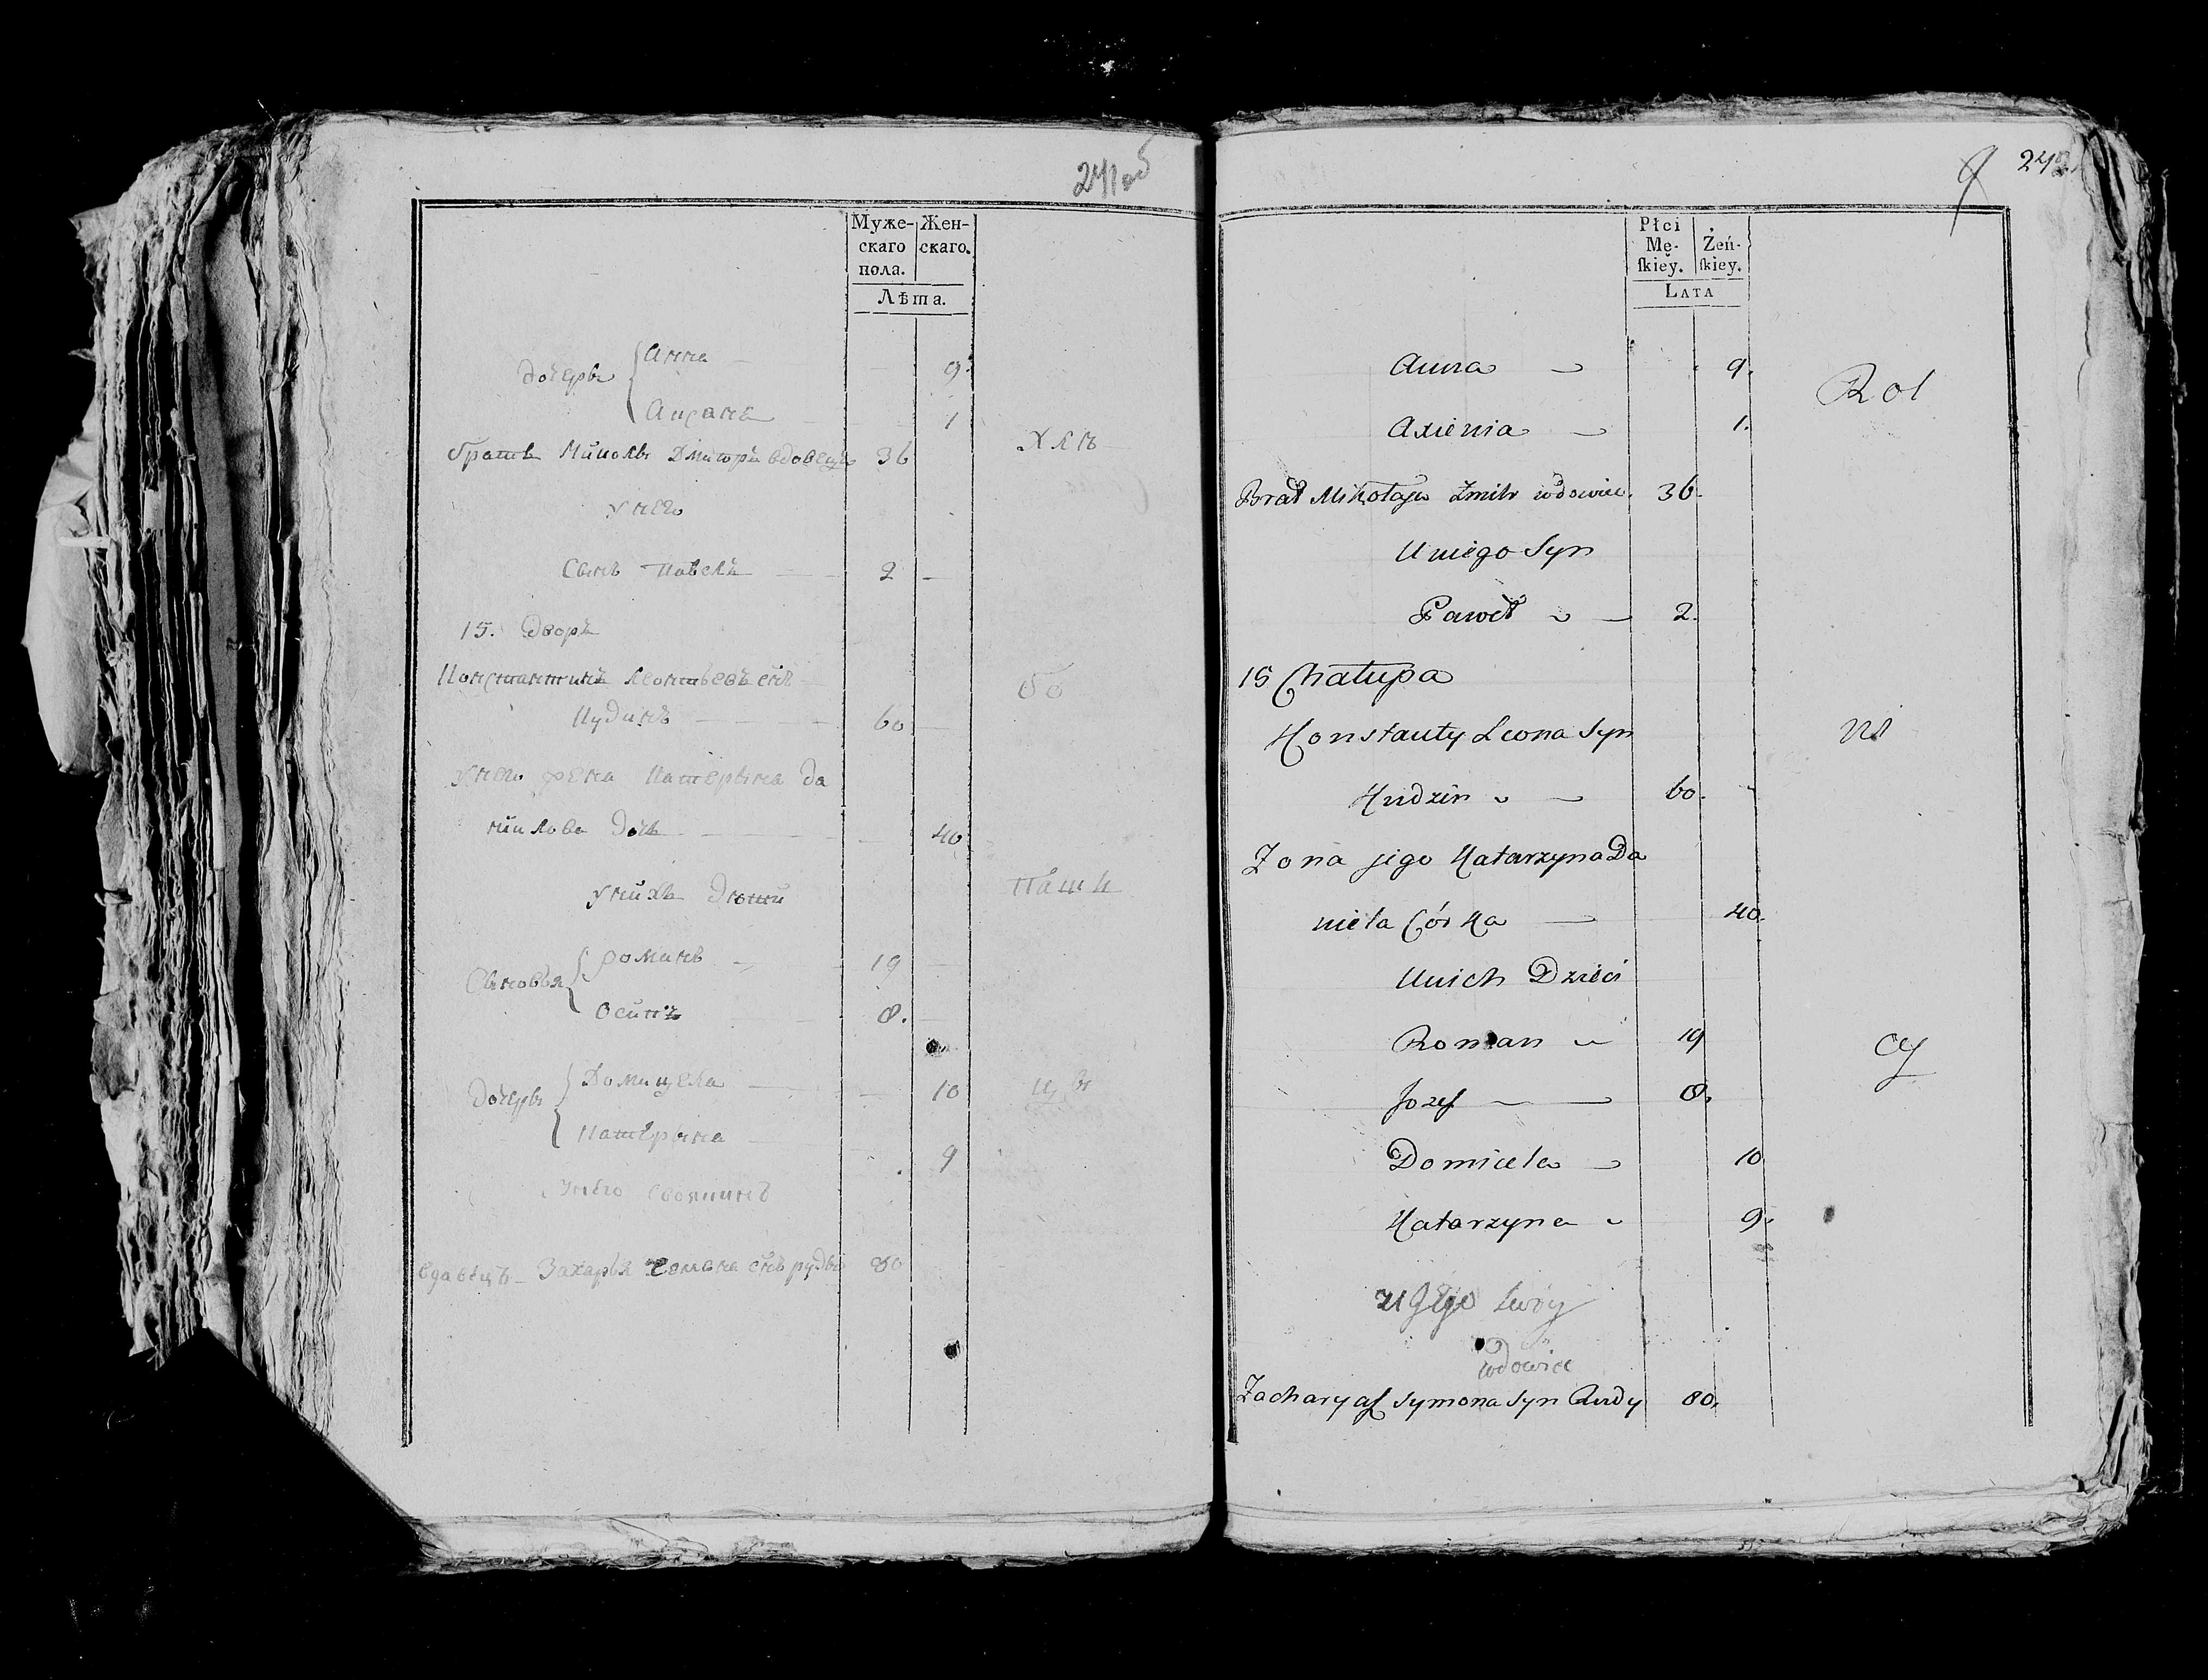 241 об
Муже- Жен-
скаго скаго.
пола.
Лѣта.
дочерѣ Анна 9.
Аксана 1
братъ Миколы Дмитри вдовецъ 36
Хлѣ
у него
Сынъ Павелъ 2
15. Дворъ
Константинъ Леонтьевъ снъ
бо
Кудинъ 60
у него жена Катерына Да
нилова дочь 40
у нихъ дѣти
паши
Сыновья Романъ 19
Осипъ 8.
дочерѣ Домицела 10
цы
Катерына 9
у него своякъ
вдавецъ Захарья Семена снъ руды 80
242
Płci
Mę- Żeń-
skiey. skiey.
LATA
Anna 9.
Rol
Axienia 1.
Brat Mikołaja Zmitr wdowiec. 36.
U niego Syn
Paweł 2.
15 Chałupa
Konstanty Leona Syn
ni
Kudzin 60.
Zona jego Katarzyna Da
nieła Córka 40.
U nich Dzieci
Roman 19
cy
Jozef 8.
Domicela 10
Katarzyna 9.
wdowiec
Zacharyasz Symona Syn Rudy 80.